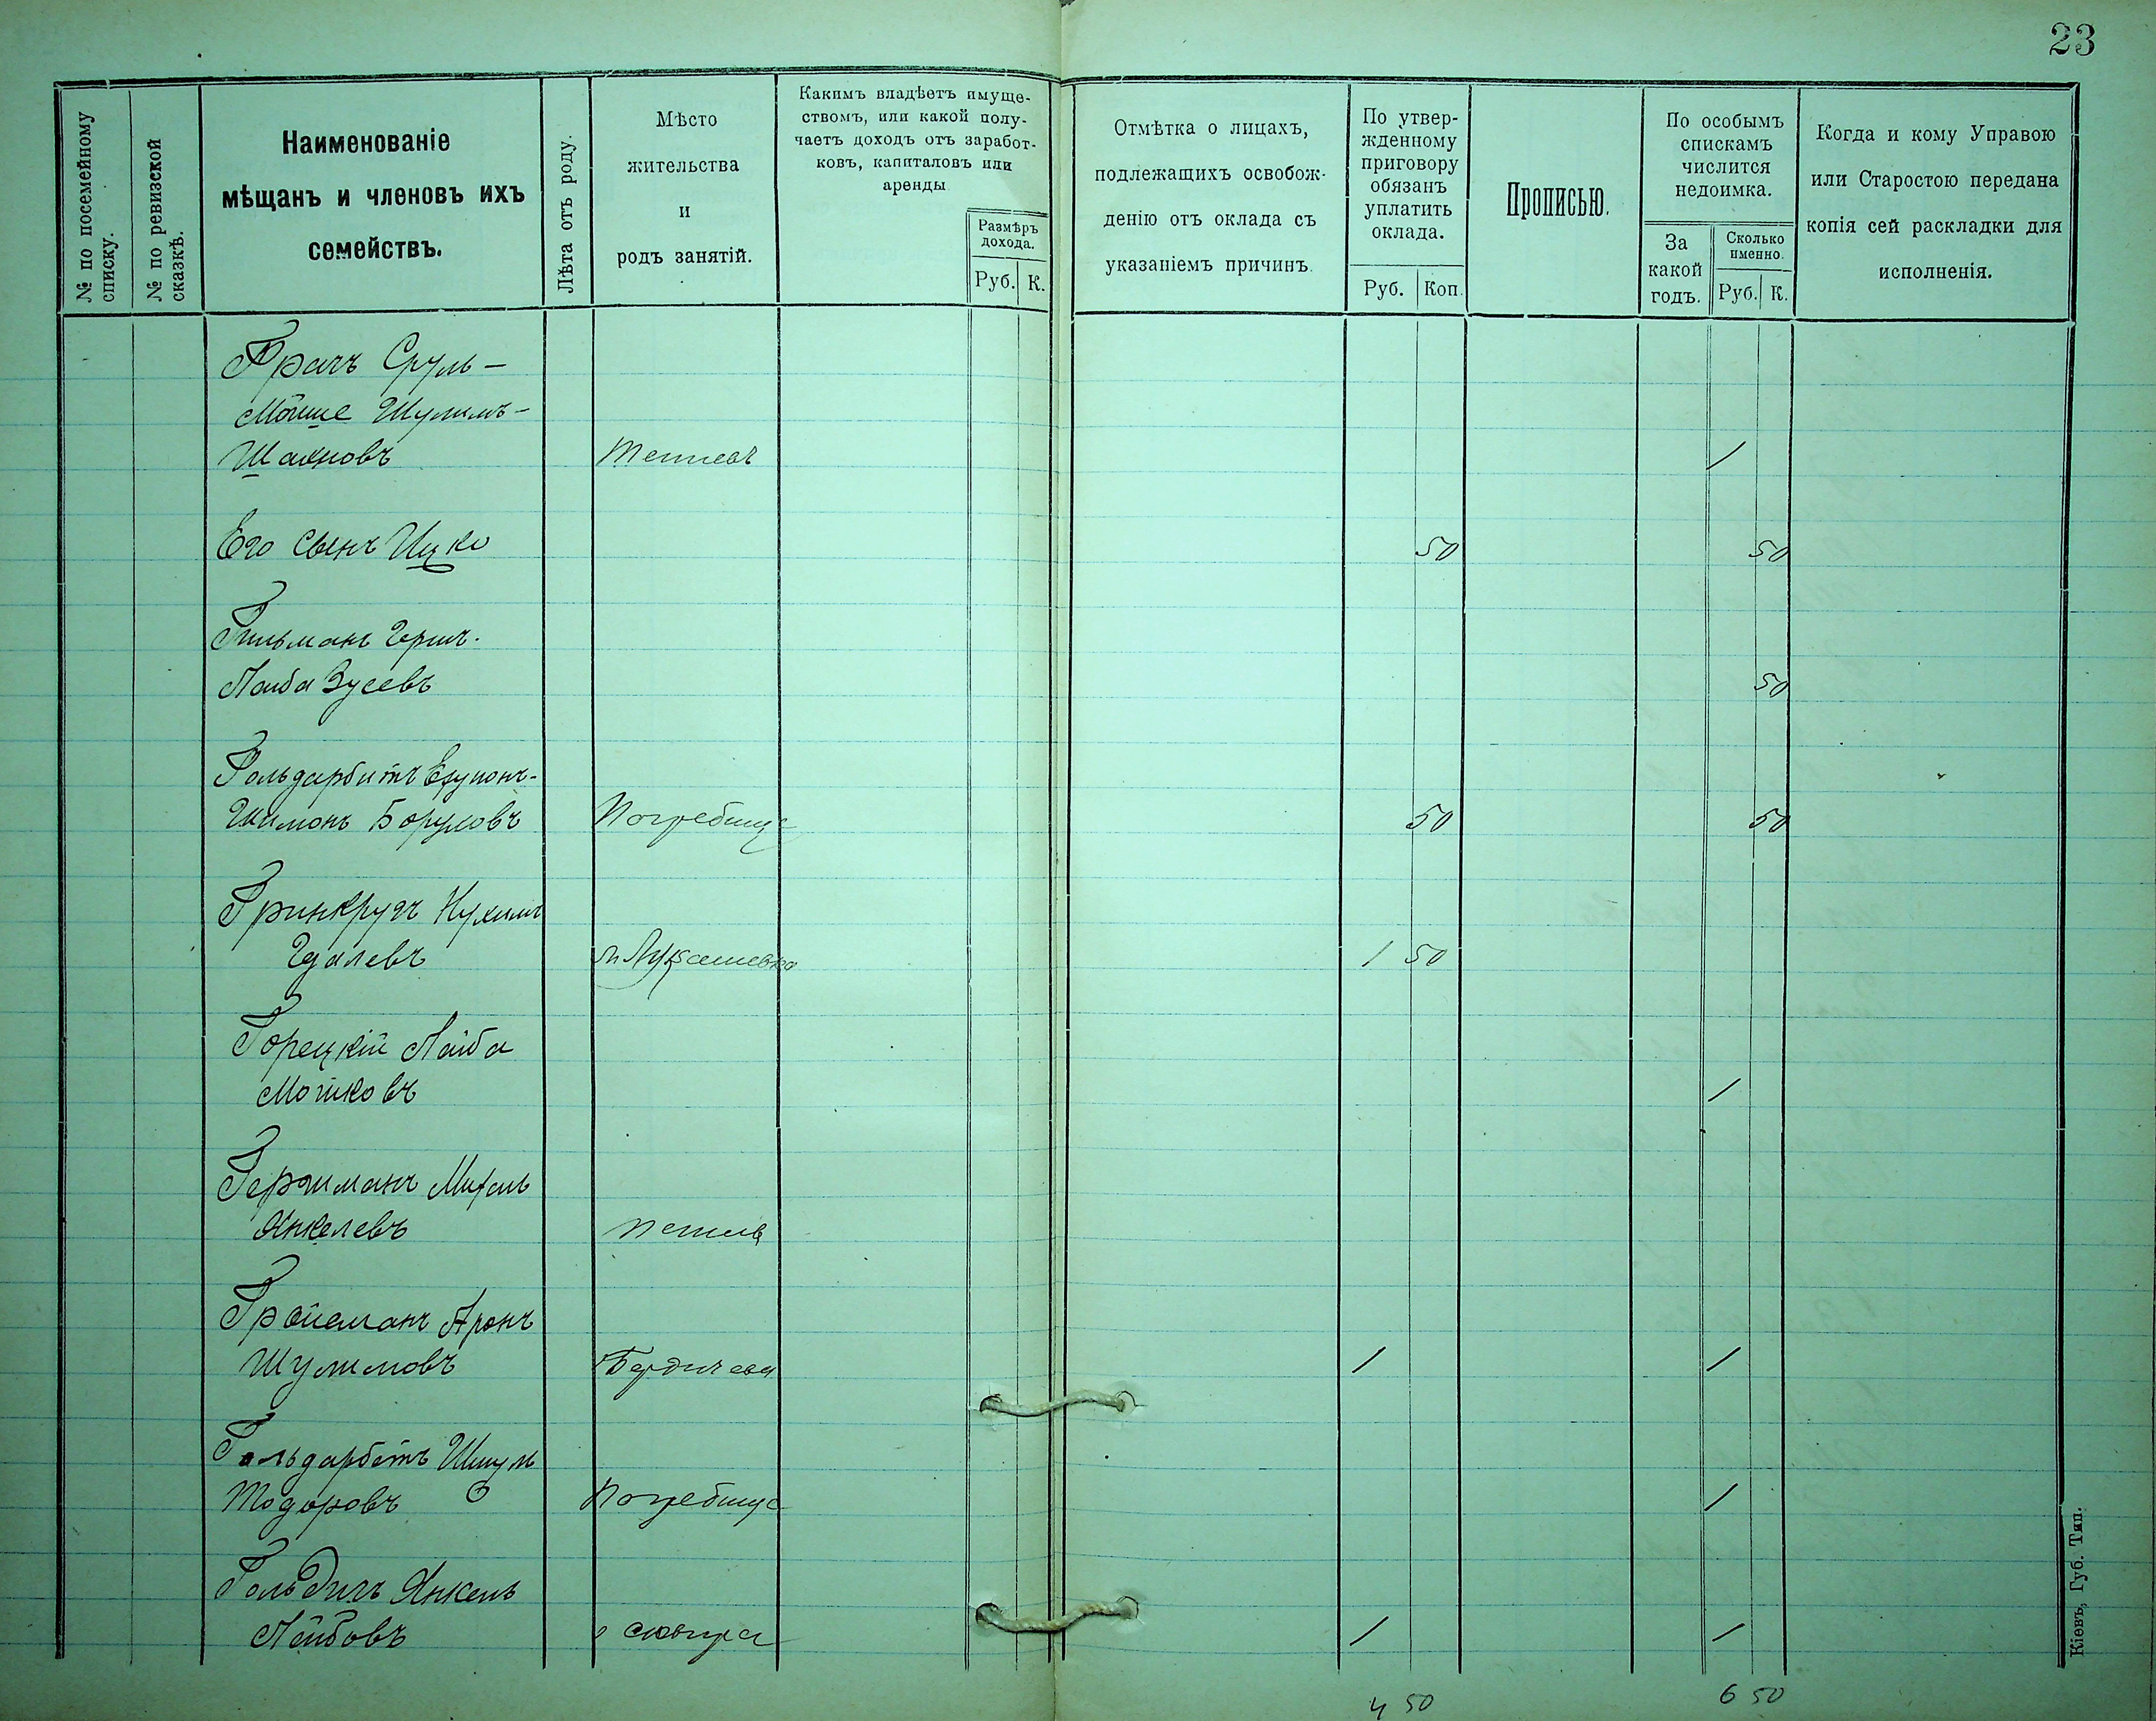 23
№ по посемейному списку.
№ по ревизской сказкѣ.
Наименованіе
мѣщанъ и членовъ ихъ
семействъ.
Лѣта отъ роду.
Мѣсто
жительства
и
родъ занятій.
Какимъ владѣетъ имуще-
ствомъ, или какой полу-
чаетъ доходъ отъ заработ-
ковъ, капиталовъ или
аренды.
Размѣръ
дохода.
Руб. К.
Отмѣтка о лицахъ,
подлежащихъ освобож-
денію отъ оклада съ
указаніемъ причинъ.
По утвер-
жденному
приговору
обязанъ
уплатить
оклада.
Руб. Коп.
Прописью.
По особымъ
спискамъ
числится
недоимка.
За
какой
годъ.
Сколько
именно.
Руб. К.
Когда и кому Управою
или Старостою передана
копія сей раскладки для
исполненія.
Грачъ Сруль-
Мошше Шулимъ-
Шахновъ 1
Его сынъ Ицко 50 50
Гильманъ Герш-
Лейба Зусевъ 50
Гольдарбитъ
Шимонъ Боруховъ Погребище 50 50
Гринкругъ Нухимъ
Гдалевъ м Лукашевка 1 50
Горецкій Лейба
Мошковъ 1
Гершманъ Михель
Янкелевъ
Гройсманъ Аронъ
Шулимовъ Бердичевъ 1 1
Гольдарбетъ Шмуль
Тодоровъ Погребище 1
Янкель
Лейбовъ сквира 1 1
4 50 6 50
Кіевъ, Губ. Тип.